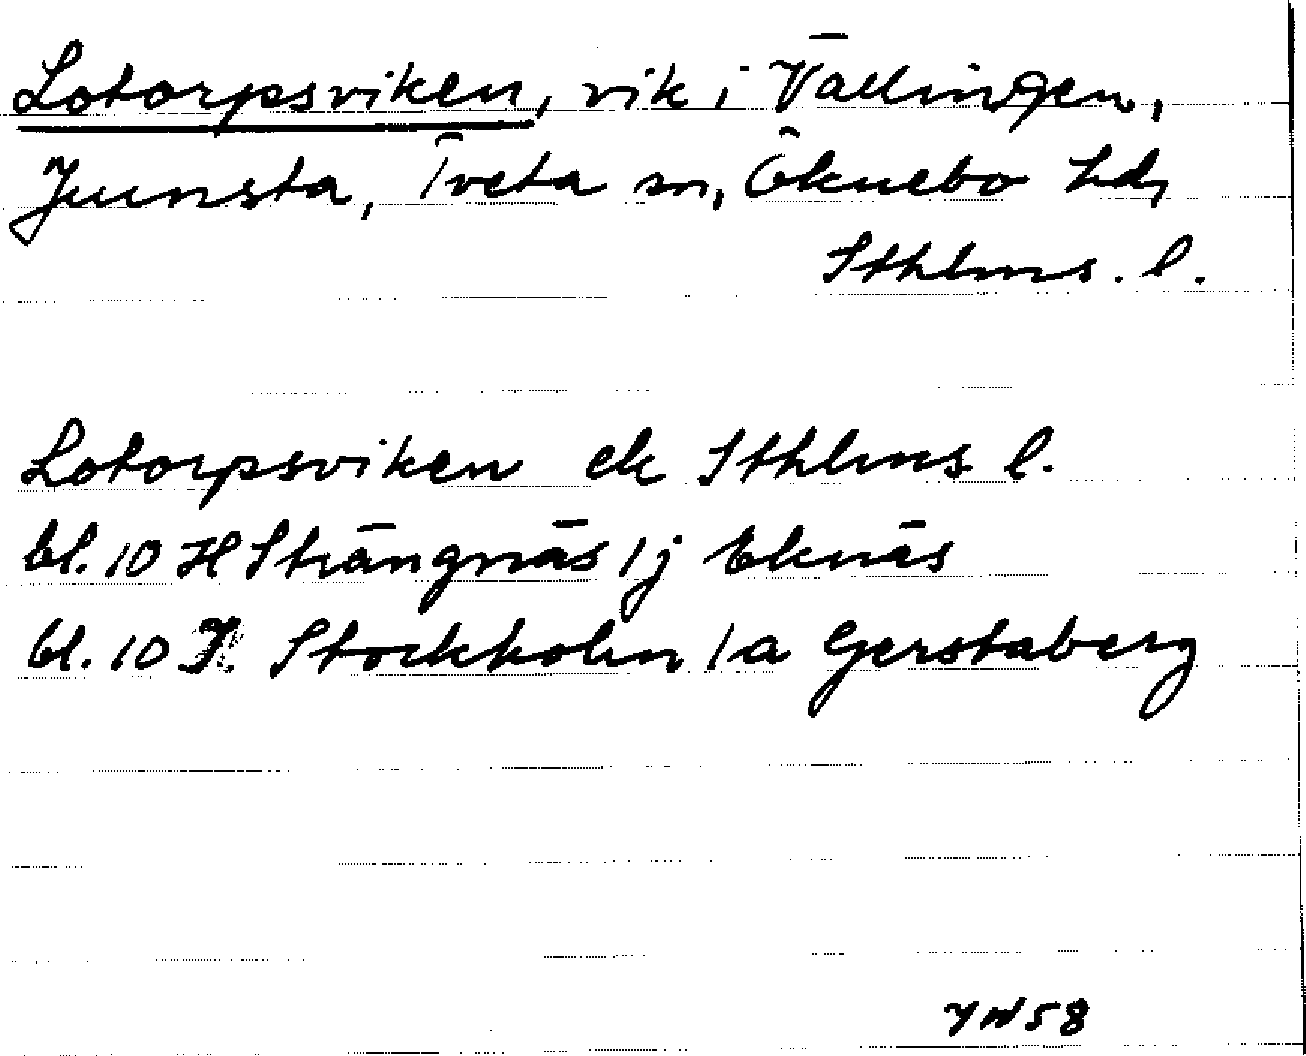 Lotorpsviken, vik i Vällingen,
Jumsta, Tveta sn, Öknebo hd,
Sthlms. l.
Lotorpsviken ek Sthlms l.
bl. 10 H Strängnäs 1j Eknäs
bl. 10 I Stockholm 1a Gerstaberg
58